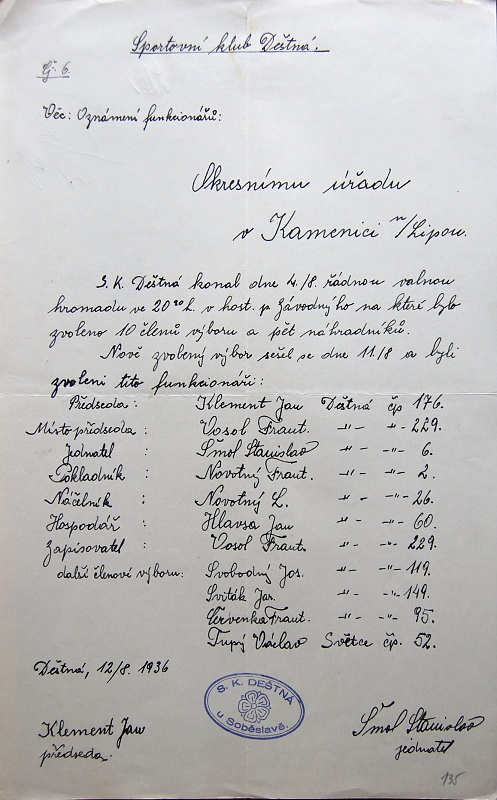 Sportovní klub Deštná.
Čj. 6.
Věc: Oznámení funkcionářů:
Okresnímu úřadu
v Kamenici n/Lipou.
S. K. Deštná konal dne 4./8. řádnou valnou
hromadu ve 20 30 h. v host. p. Závodnýho na které bylo
zvoleno 10 členů výboru a pět náhradníků.
Nově zvolený výbor sešel se dne 11./8 a byli
zvoleni tito funkcionáři:
Předseda: Klement Jan Deštná čp 176.
Místo předseda: Vosol Frant. -"- -"- 229.
Jednatel : Šmol Stanislav -"- -"- 6.
Pokladník: Novotný Frant. -"- -"- 2.
Náčelník : Novotný L. -"- -"- 26.
Hospodář : Hlavsa Jan -"- -"- 60.
Zapisovatel : Vosol Frant. -"- -"- 229.
další členové výboru: Svobodný Jos. -"- -"- 119.
Sviták Jar. -"- -"- 149.
Červenka Frant. -"- -"- 95.
Tupý Václav Světce čp. 52.
Deštná, 12/8. 1936
S. K. DEŠTNÁ
u Soběslavě.
Klement Jan
předseda.
Šmol Stanislav
jednatel
135